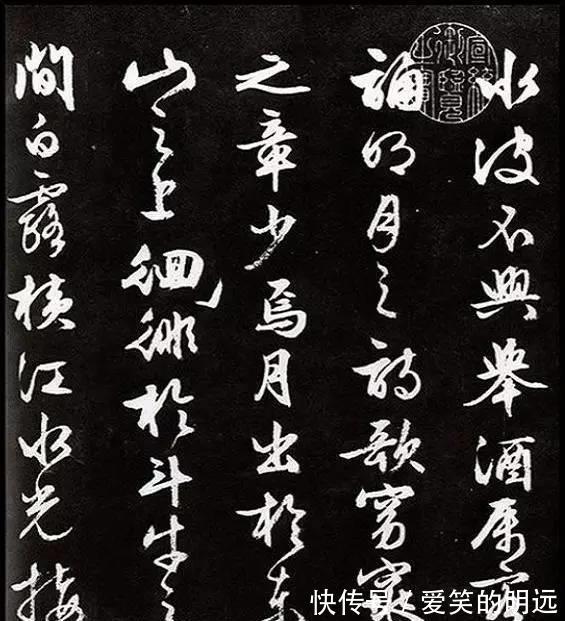 水波不興舉酒属客
誦明月之詩歌窈窕
之章少焉月出於東
山之上徊徘於斗牛之
間白露横江水光接
快传号/爱笑的明远